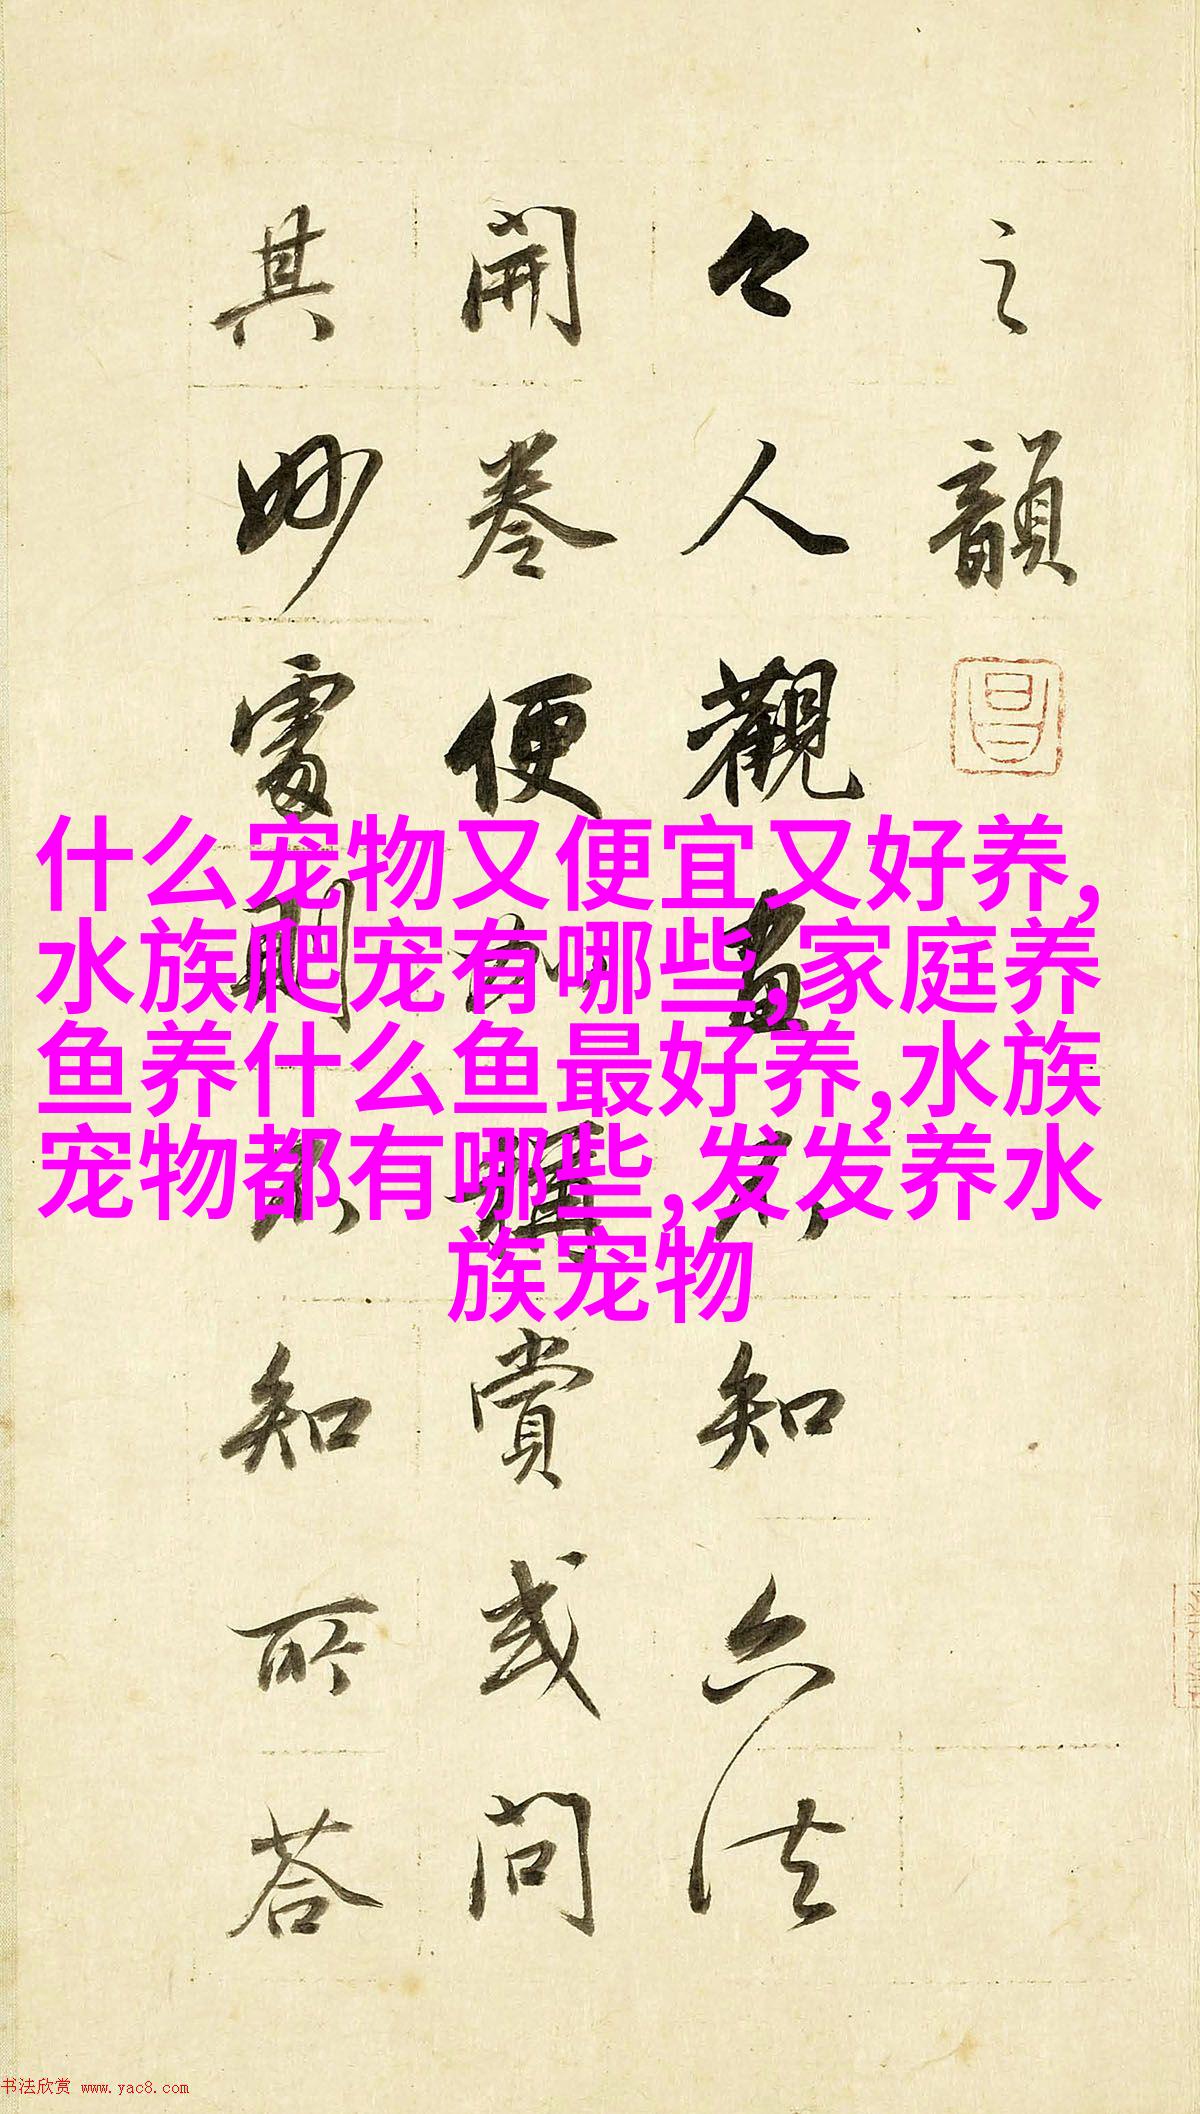 之韻
今人觀畫不知六法
開卷便加稱賞或問
其妙處則不知所荅
什么宠物又便宜又好养,
水族爬宠有哪些,家庭养
鱼养什么鱼最好养,水族
宠物都有哪些,发发养水
族宠物
书法欣赏 www.yac8.com